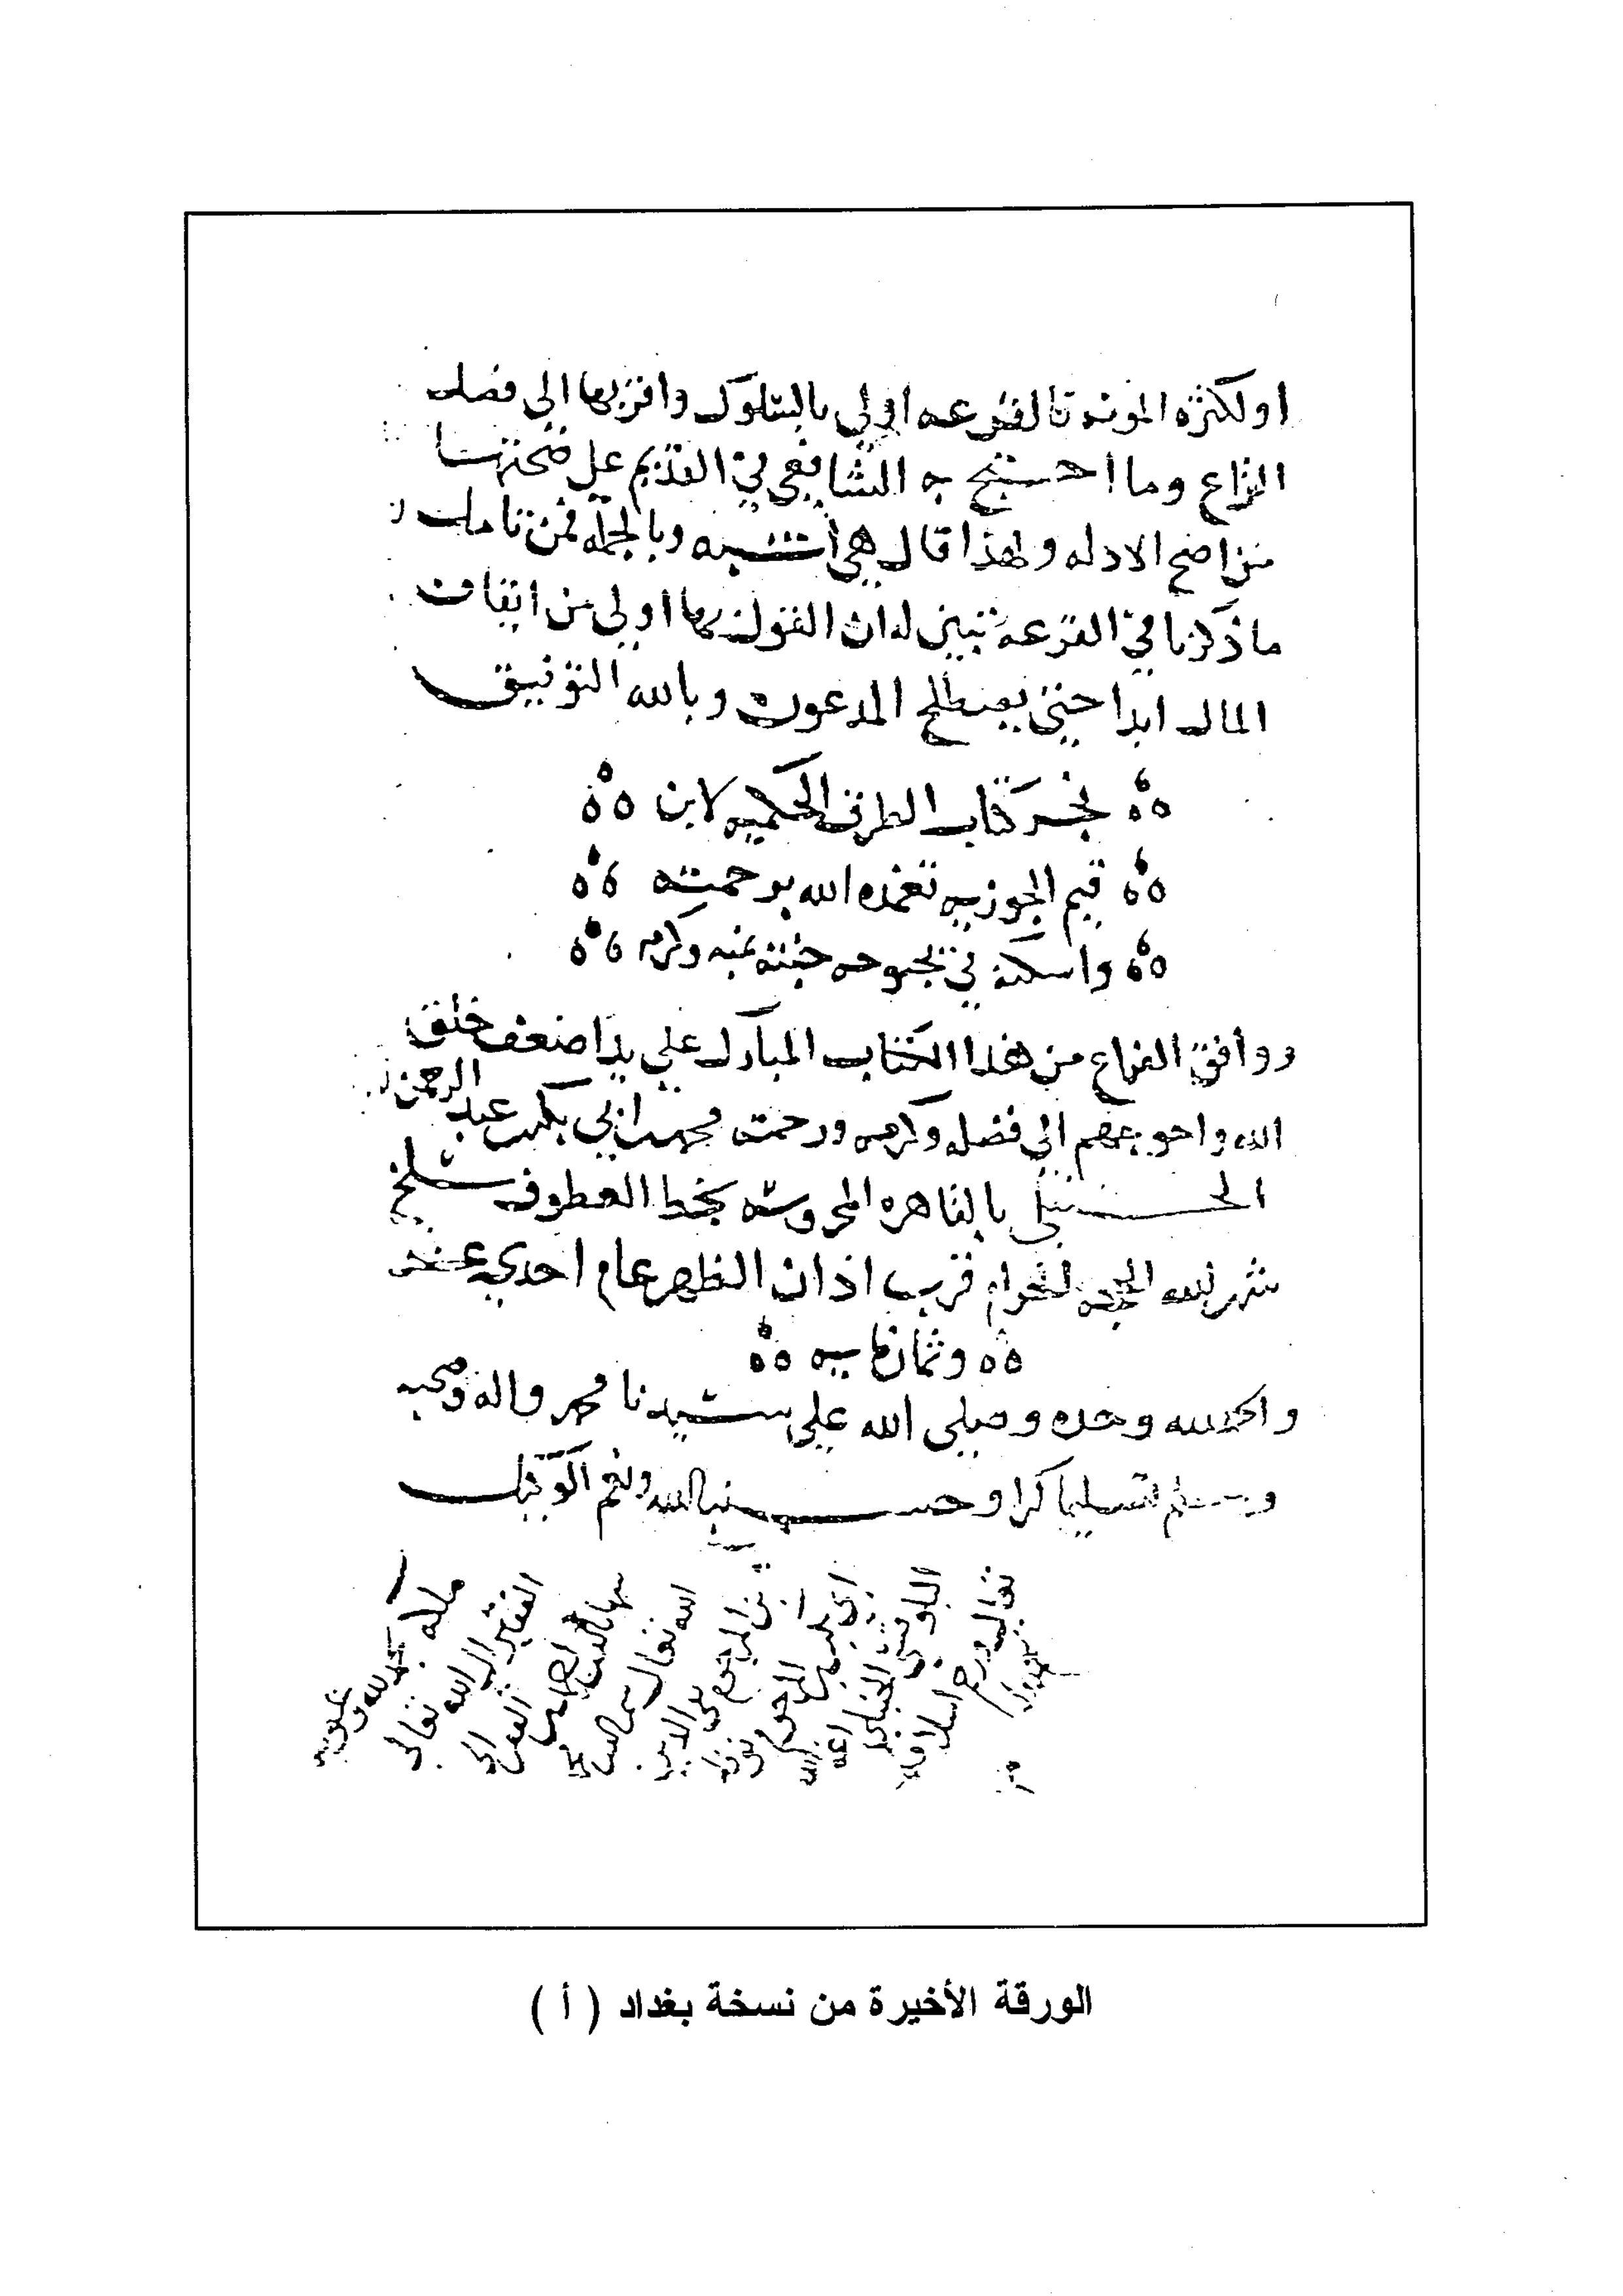 او لكثره المونه فالقرعه اولي بالسلوك واقربها الي فصل
النزاع وما احتج به الشافعي في القديم علي صحتها
من اصح الادله ولهذا قال هي اشبه وبالجمله فمن تامل
ما ذكرنا في القرعه تبين له ان القول بها اولي من ايقاف
المال ابدا حتي يصطلح المدعون وبالله التوفيق
نجز كتاب الطرق الحكميه لابن
قيم الجوزيه تغمده الله برحمته
واسكنه في بحبوحه جنته بمنه وكرمه
ووافق الفراغ من هذا الكتاب المبارك علي يد اضعف خلق
الله واحوجهم الي فضله وكرمه ورحمته محمد بن ابي بكر بن عبد الرحمن
الحنبلي بالقاهره المحروسه بخط العطوف سلخ
شهر الله الحجه الحرام قرب اذان الظهر عام احدي عشر
وثمان مايه
والحمد لله وحده وصلي الله علي سيدنا محمد واله وصحبه
وسلم تسليما كثيرا وحسبنا الله ونعم الوكيل
ملكه بحمد الله وعونه
الفقير الي الله تعالي
الله تعالي
بن المرحوم
الحنبلي
الورقة الأخيرة من نسخة بغداد ( أ )